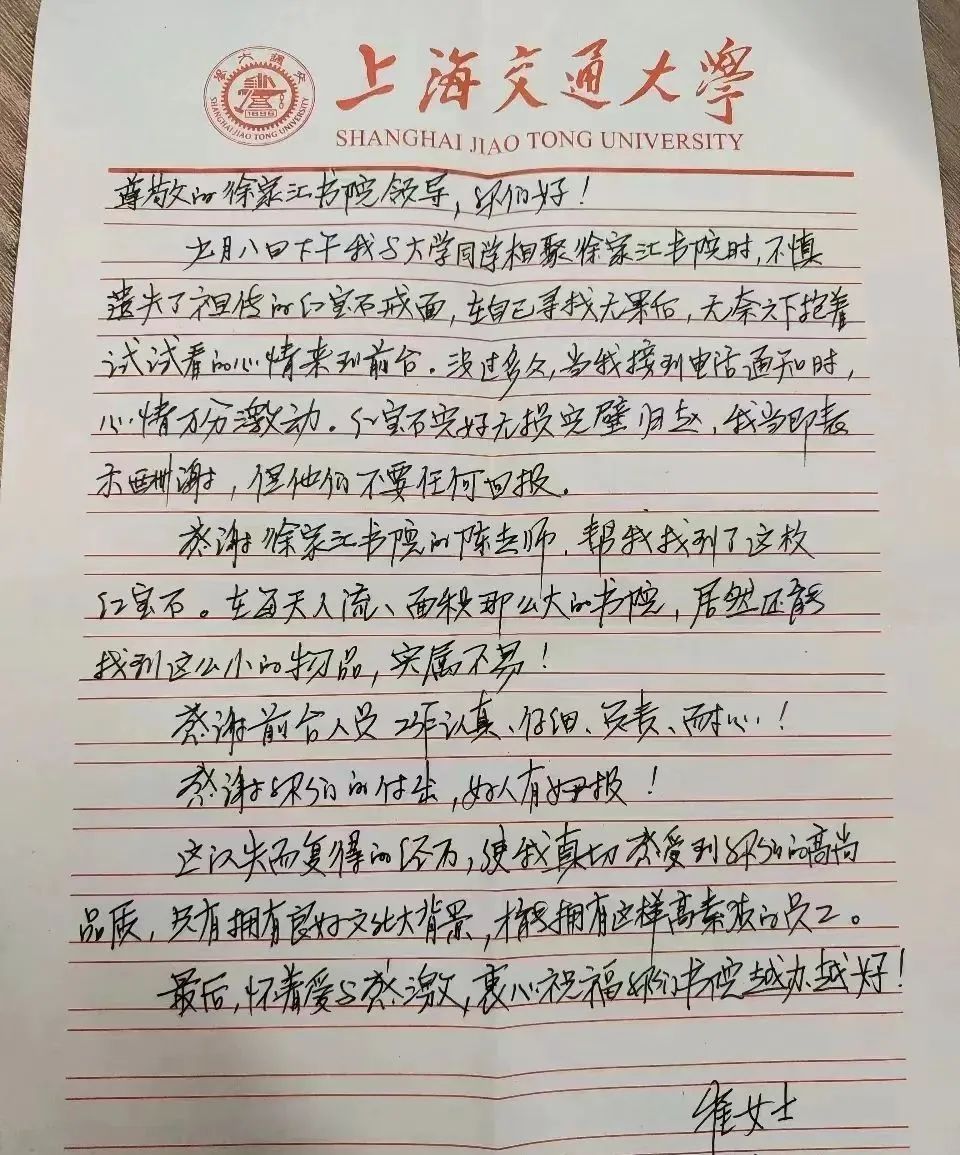 上海交通大學
SHANGHAI JIAO TONG UNIVERSITY
SHANGHAI JIAO TONG UNIVERSITY
1896
尊敬的徐家汇书院领导，你们好！
月八日下午我与大学同学相聚徐家汇书院时，不慎
遗失了祖传的红宝石戒面，在自己寻找无果后，无奈之下抱着
试试看的心情来到前台．没过多久，当我接到电话通知时，
心情万分激动．红宝石完好无损完璧归赵，我当即表
示酬谢，但他们不要任何回报。
感谢徐家汇书院的陈老师．帮我找到了这枚
红宝石。在每天人流、面积那么大的书院，居然还能
找到这么小的物品，实属不易！
感谢前台人员工作认真、仔细、负责、耐心！
感谢你们的付出，好人有好报！
这次失而复得的经历，使我真切感受到你们的高尚
品质，只有拥有良好文化大背景，才能拥有这样高素质的员工。
最后，怀着爱与感激，衷心祝福你们书院越办越好！
崔女士